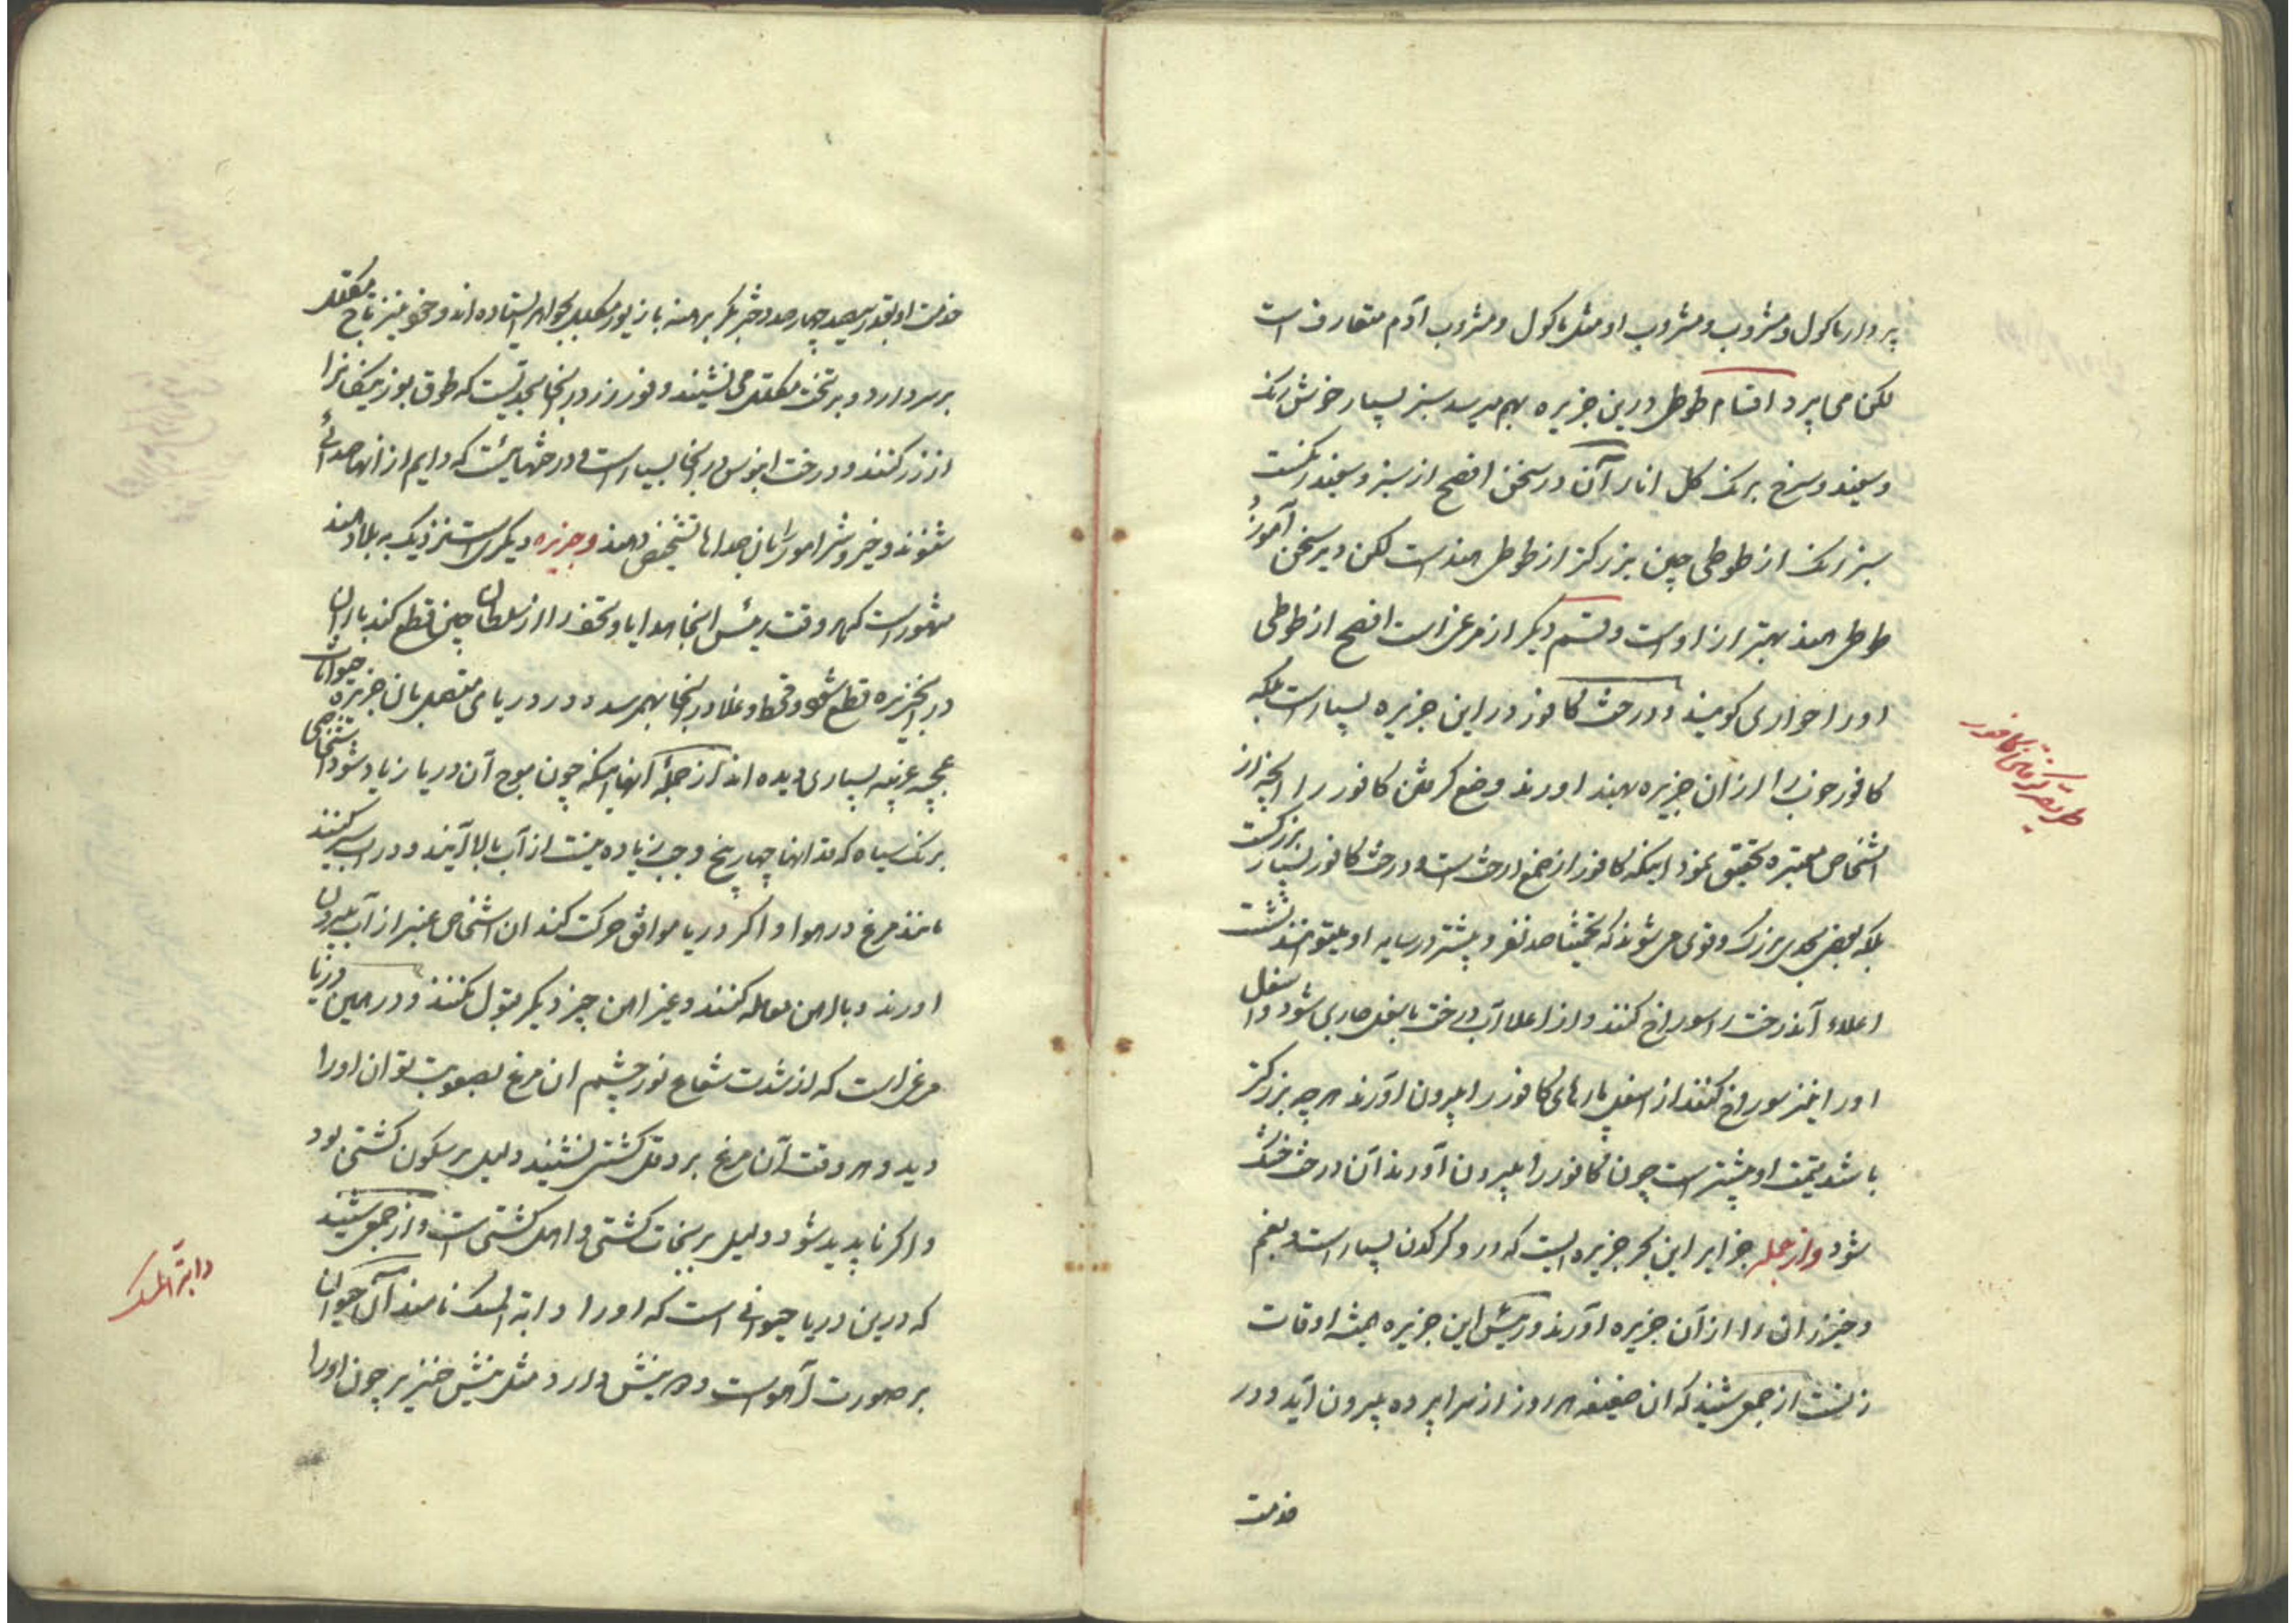 پردار ماکول و مشروب و مشروب او مثل ماکول و مشروب آدم متعارف است
لکن می پرد اقسام طوطی درین جزیره بهم میرسد سبز بسیار خوش رنک
و سفید و سرخ برنک کل انار آن در سخن افصح از سبز و سفید رنکست
سبز رنک از طوطی چین بزرکتر از طوطی هند است لکن دیر سخن آموزد
طوطی هند بهتر از اوست و قسم دیکر از مرغ است افصح از طوطی
او را حواری کویند و درخت کافور در این جزیره بسیار است بلکه
کافور خوب را از ان جزیره بهند اورند وضع کرفتن کافور را آنچه از
اشخاص معتبره تحقیق نمود اینکه کافور از صمغ درخت است و درخت کافور بسیار بزرکست
بلکه بعضی بحدی بزرک و قوی می شوند که تخمینا صد نفر و بیشتر در سایه او میتوانند نشست
اعلاء آندرخت را سوراخ کنند و از اعلا آب درخت باسفل جاری شود و اسفل
او را نیز سوراخ کنند از اسفل پارهای کافور را بیرون اورند هر چه بزرکتر
باشد قیمت او بیشتر است چون کافور را بیرون آورند آن درخت خشک
شود و از جمله جزایر این بحر جزیره ایست که در و کرکدن بسیار است و بقم
و خیزران را از آن جزیره آورند و رئیس این جزیره همیشه اوقات
زنست از جمعی شنید که ان ضعیفه هر روز از سراپرده بیرون آید و در
خدمت
طریقه کرفتن کافور
خدمت او بقدر سیصد چهار صد دختر بکر برهنه با زیور مکلل بجواهر ایستاده اند و خود نیز تاج مکلل
بر سر دارد و بر تخت مکلل می نشیند و فور زر در انجا بحدیست که طوق بوزینکانرا
از زر کنند و درخت ابنوس در انجا بسیار است و درختهائیست که دایم از انها صدائی
شنوند و خیر و شر امور را بان صداها تشخیص دهند و جزیره دیکر است نزدیک به بلاد هند
مشهور است که هر وقت رئیس انجا هدایا و تحف را از سلطان چین قطع کند باران
در انجزیره قطع شود و قحط و غلا در انجا بهم رسد و در دریای متصل بان جزیره حیوانات
عجیبه غریبه بسیاری دیده اند از جمله آنها اینکه چون موج آن دریا زیاد شود اشخاصی
برنک سیاه که قد انها چهار پنج وجب زیاده نیست از آب بالا آیند و در اب سیر کنند
مانند مرغ در هوا و اکر دریا موافق حرکت کند ان اشخاص عنبر از آب بیرون
اورند و با اهن معامله کنند و غیر اهن چیز دیکر قبول نکنند و در همین دریا
مرغ است که از شدت شعاع نور چشم ان مرغ بصعوبت توان او را
دید و هر وقت آن مرغ بر دقل کشتی نشیند دلیل بر سکون کشتی بود
و اکر ناپدید شود دلیل بر نجات کشتی و اهل کشتی است و از جمعی شنید
که درین دریا حیوانی است که او را دابة المسک نامند آن حیوان
بر صورت آهوست و دو نیش دارد مثل نیش خنزیر چون او را
دابة المسک